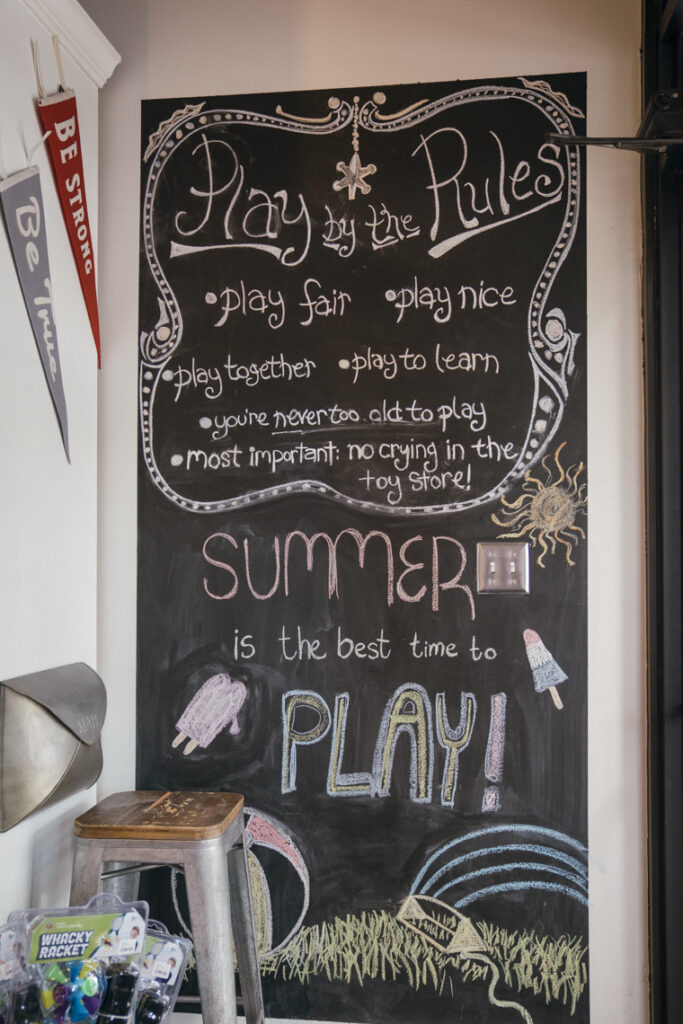 BE STRONG
Be True
Play by the Rules
•play fair •play nice
•play together •play to learn
•you're never too old to play
•most important: no crying in the
toy store!
SUMMER
is the best time to
PLAY!
WHACKY
RACKET